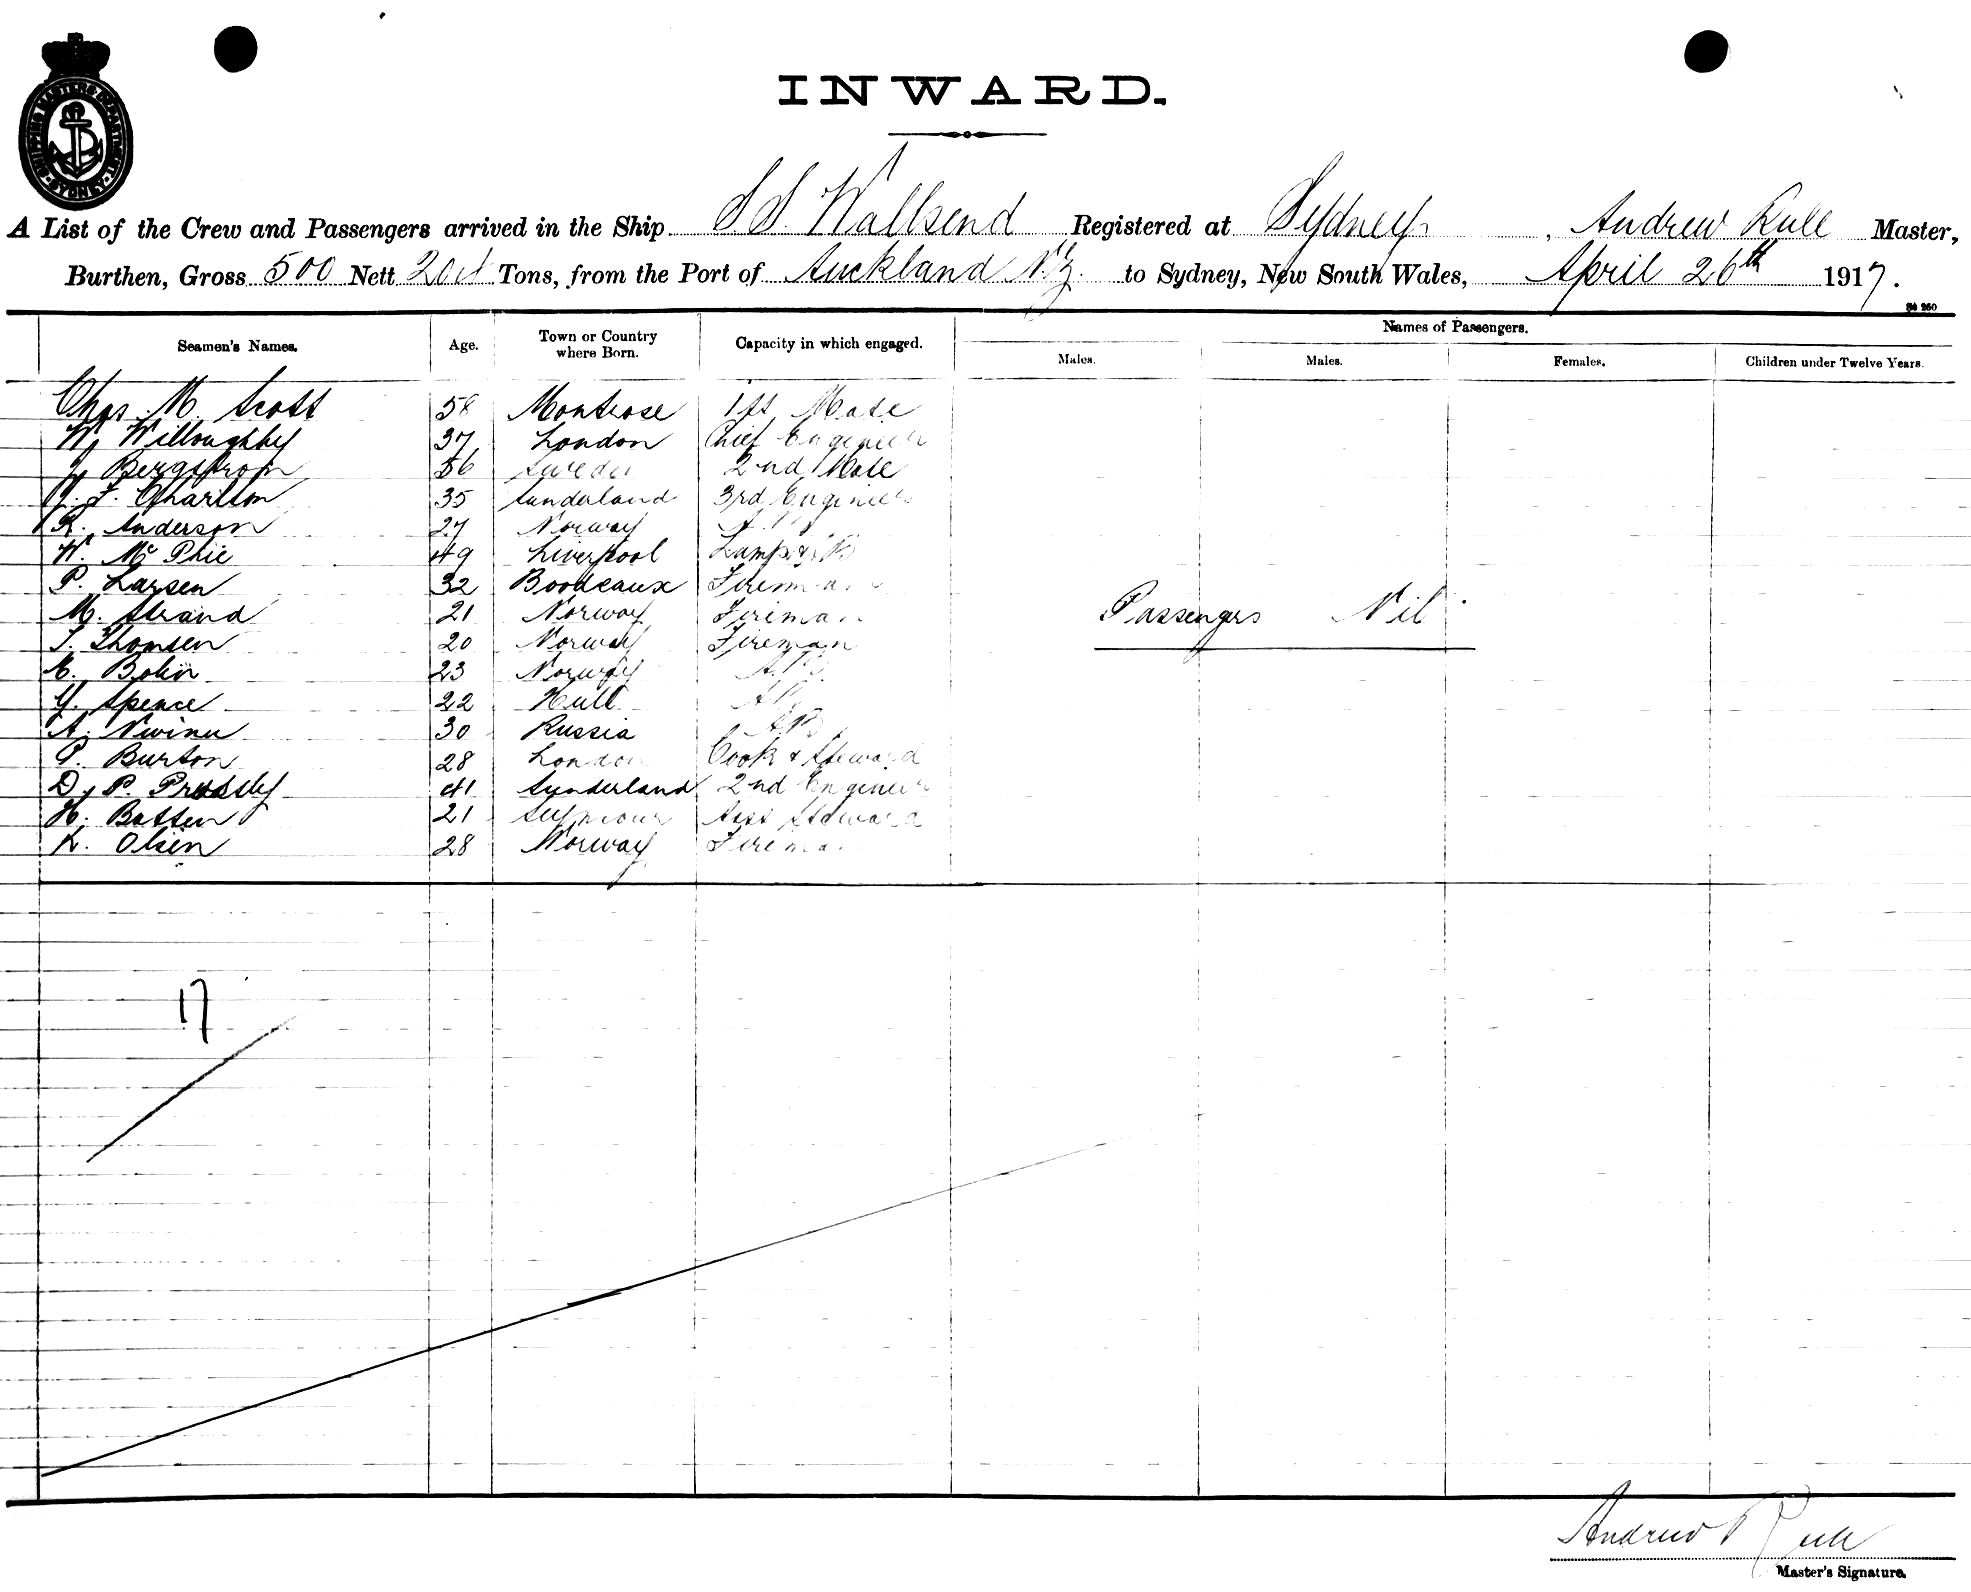 SHIPPING MASTERS DEPARTMENT SYDNEY
INWARD.
A List of the Crew and Passengers arrived in the Ship S.S. Wallsend Registered at Sydney, Andrew Rule Master,
Burthen, Gross 500 Nett Tons, from the Port of Auckland N.Z. to Sydney, New South Wales, April 26th 1917.
Seamen's Names. Age. Town or Country where Born. Capacity in which engaged. Names of Passengers.
Males. Males. Females. Children under Twelve Years.
Chas M. Scott 58 Montrose 1st Mate
W. Willoughby 37 London Chief Engineer
Bergstrom 56 Sweden 2nd Mate
J. F. Charlton 35 Sunderland 3rd Engineer
R. Anderson 27 Norway A.B
W. McPhie 49 Liverpool
P. Larsen 32 Boodeaux Fireman
M. Strand 21 Norway Fireman
Passengers Nil
T. Thomsen 20 Norway Fireman
23 Norway A.B.
Spence 22 Hull AB
A. 30 Russia AB
P. Burton 28 London Cook & Steward
D. P. 41 Sunderland 2nd Engineer
H. Batten 21 Seymour Ass Steward
K. Olsen 28 Norway Fireman
17
Andrew Rule
Master's Signature.